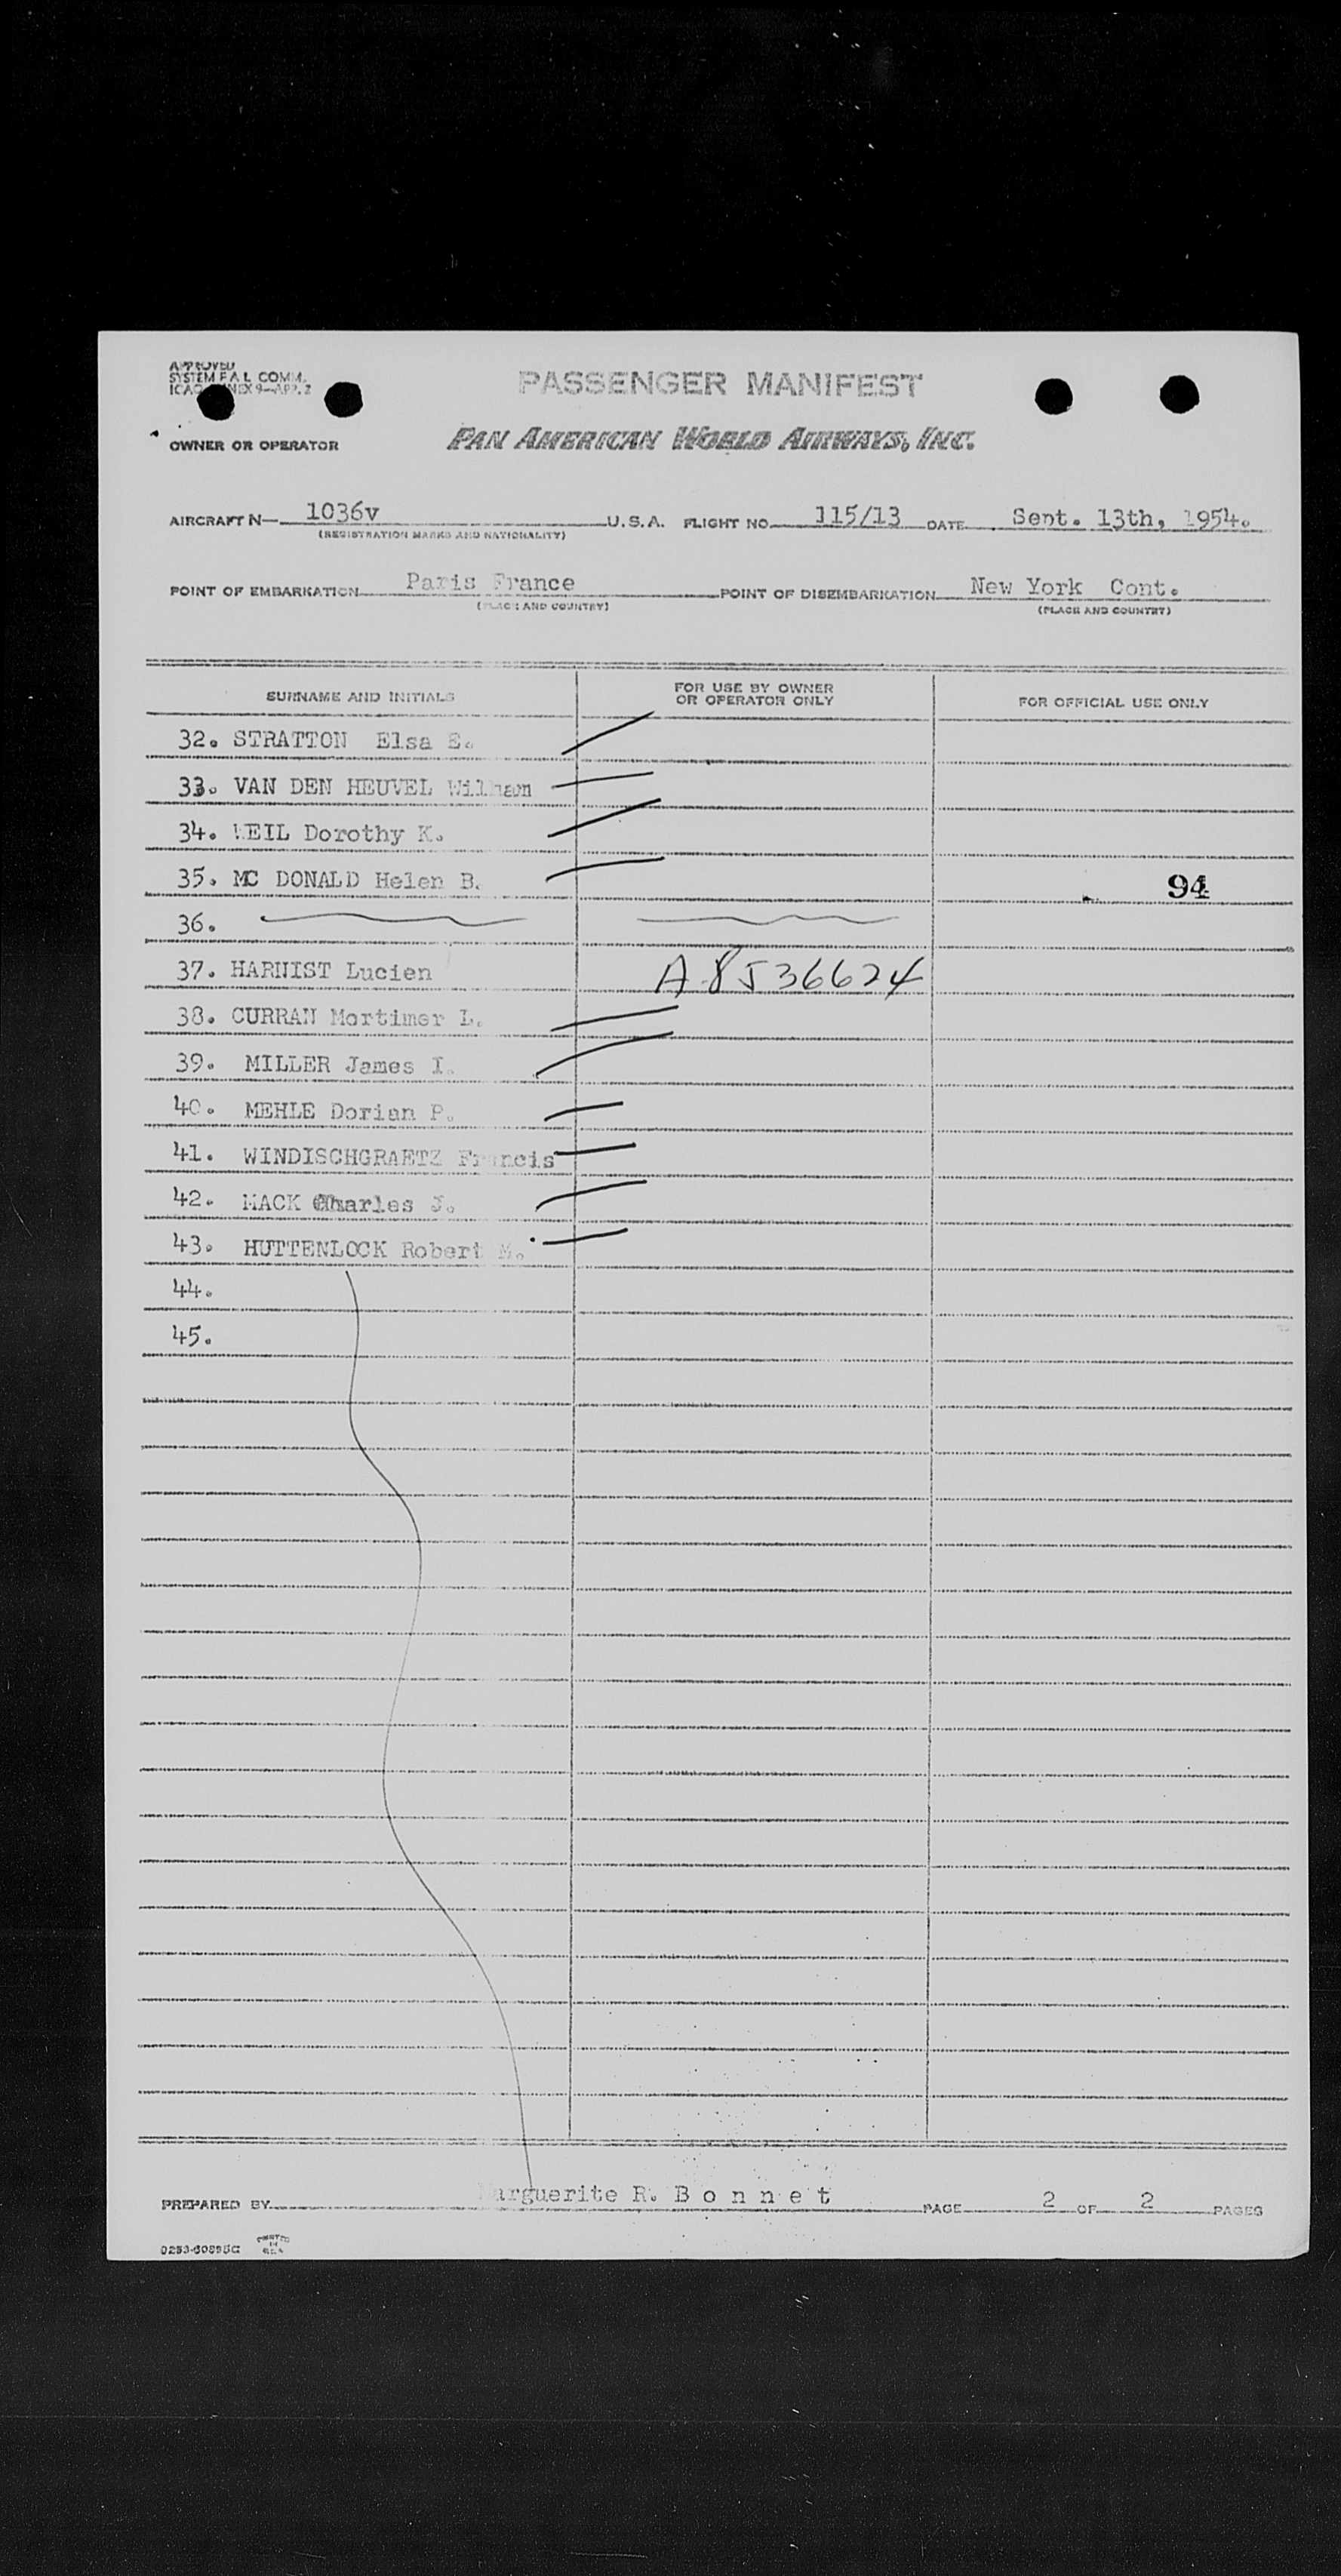 APPROVED
SYSTEM F.A.L. COMM.
ICAO ANNEX 9—APP. 2
PASSENGER MANIFEST
OWNER OR OPERATOR
PAN AMERICAN WORLD AIRWAYS, INC.
AIRCRAFT N— 1036v U.S.A. FLIGHT NO. 115/13 DATE Sept. 13th, 1954.
(REGISTRATION MARKS AND NATIONALITY)
POINT OF EMBARKATION Paris France POINT OF DISEMBARKATION New York Cont.
(PLACE AND COUNTRY) (PLACE AND COUNTRY)
SURNAME AND INITIALS FOR USE BY OWNER OR OPERATOR ONLY FOR OFFICIAL USE ONLY
32. STRATTON Elsa E.
33. VAN DEN HEUVEL
34. WEIL Dorothy K.
35. MC DONALD Helen B. 94
36.
37. HARNIST Lucien A 8536624
38. CURRAN Mortimer L.
39. MILLER James I.
40. MEHLE Dorian P.
41. WINDISCHGRAETZ Francis
42. MACK Charles J.
43. HUTTENLOCK Robert M.
44.
45.
PREPARED BY Marguerite R. Bonnet PAGE 2 OF 2 PAGES
PRINTED
IN
U.S.A.